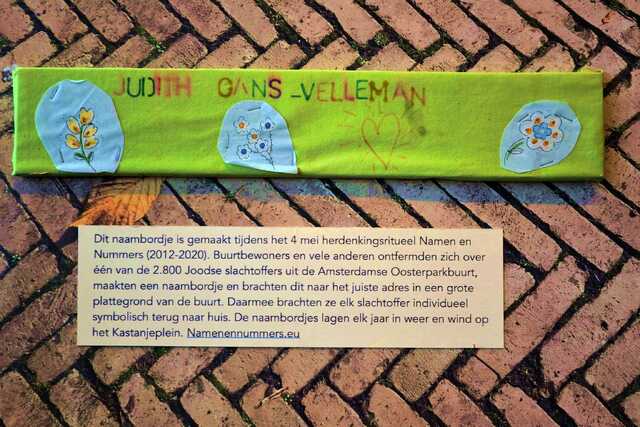 JUDITH GANS-VELLEMAN
Dit naambordje is gemaakt tijdens het 4 mei herdenkingsritueel Namen en
Nummers (2012-2020). Buurtbewoners en vele anderen ontfermden zich over
één van de 2.800 Joodse slachtoffers uit de Amsterdamse Oosterparkbuurt,
maakten een naambordje en brachten dit naar het juiste adres in een grote
plattegrond van de buurt. Daarmee brachten ze elk slachtoffer individueel
symbolisch terug naar huis. De naambordjes lagen elk jaar in weer en wind op
het Kastanjeplein. Namenennummers.eu